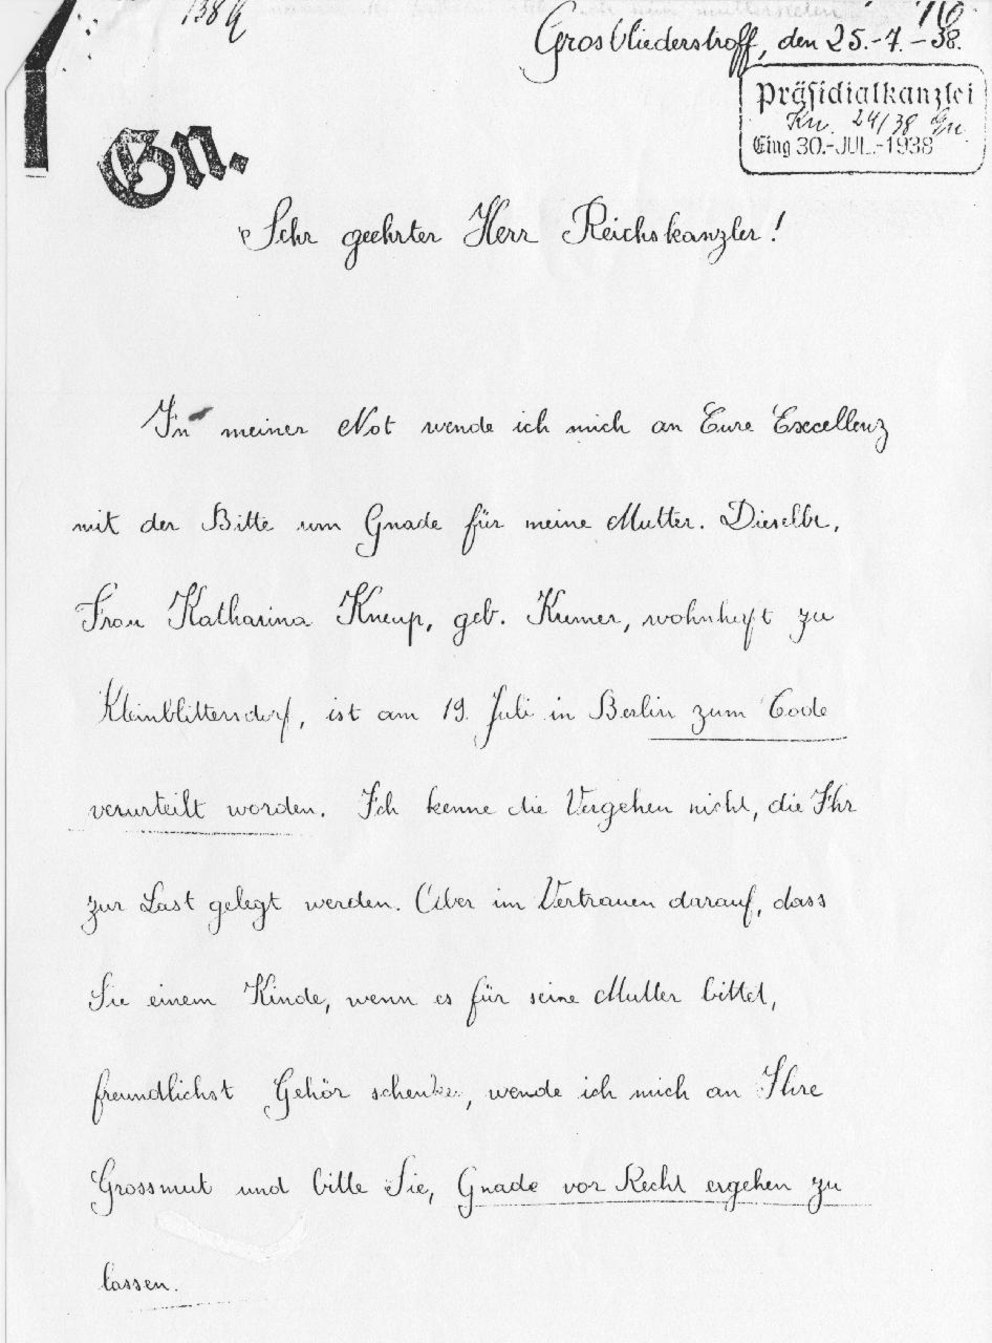 138 g
116
Grosbliederstroff, den 25.-7.-38.
Präsidialkanzlei
Kn. 24/38 Gn.
Eing 30.-JUL.-1938
Gn.
Sehr geehrter Herr Reichskanzler!
In meiner Not wende ich mich an Eure Excellenz
mit der Bitte um Gnade für meine Mutter. Dieselbe,
Frau Katharina Kneup, geb. Kumer, wohnhaft zu
Kleinblittersdorf, ist am 19. Juli in Berlin zum Tode
verurteilt worden. Ich kenne die Vergehen nicht, die Ihr
zur Last gelegt werden. Aber im Vertrauen darauf, dass
Sie einem Kinde, wenn es für seine Mutter bittet,
freundlichst Gehör schenken, wende ich mich an Ihre
Grossmut und bitte Sie, Gnade vor Recht ergehen zu
lassen.